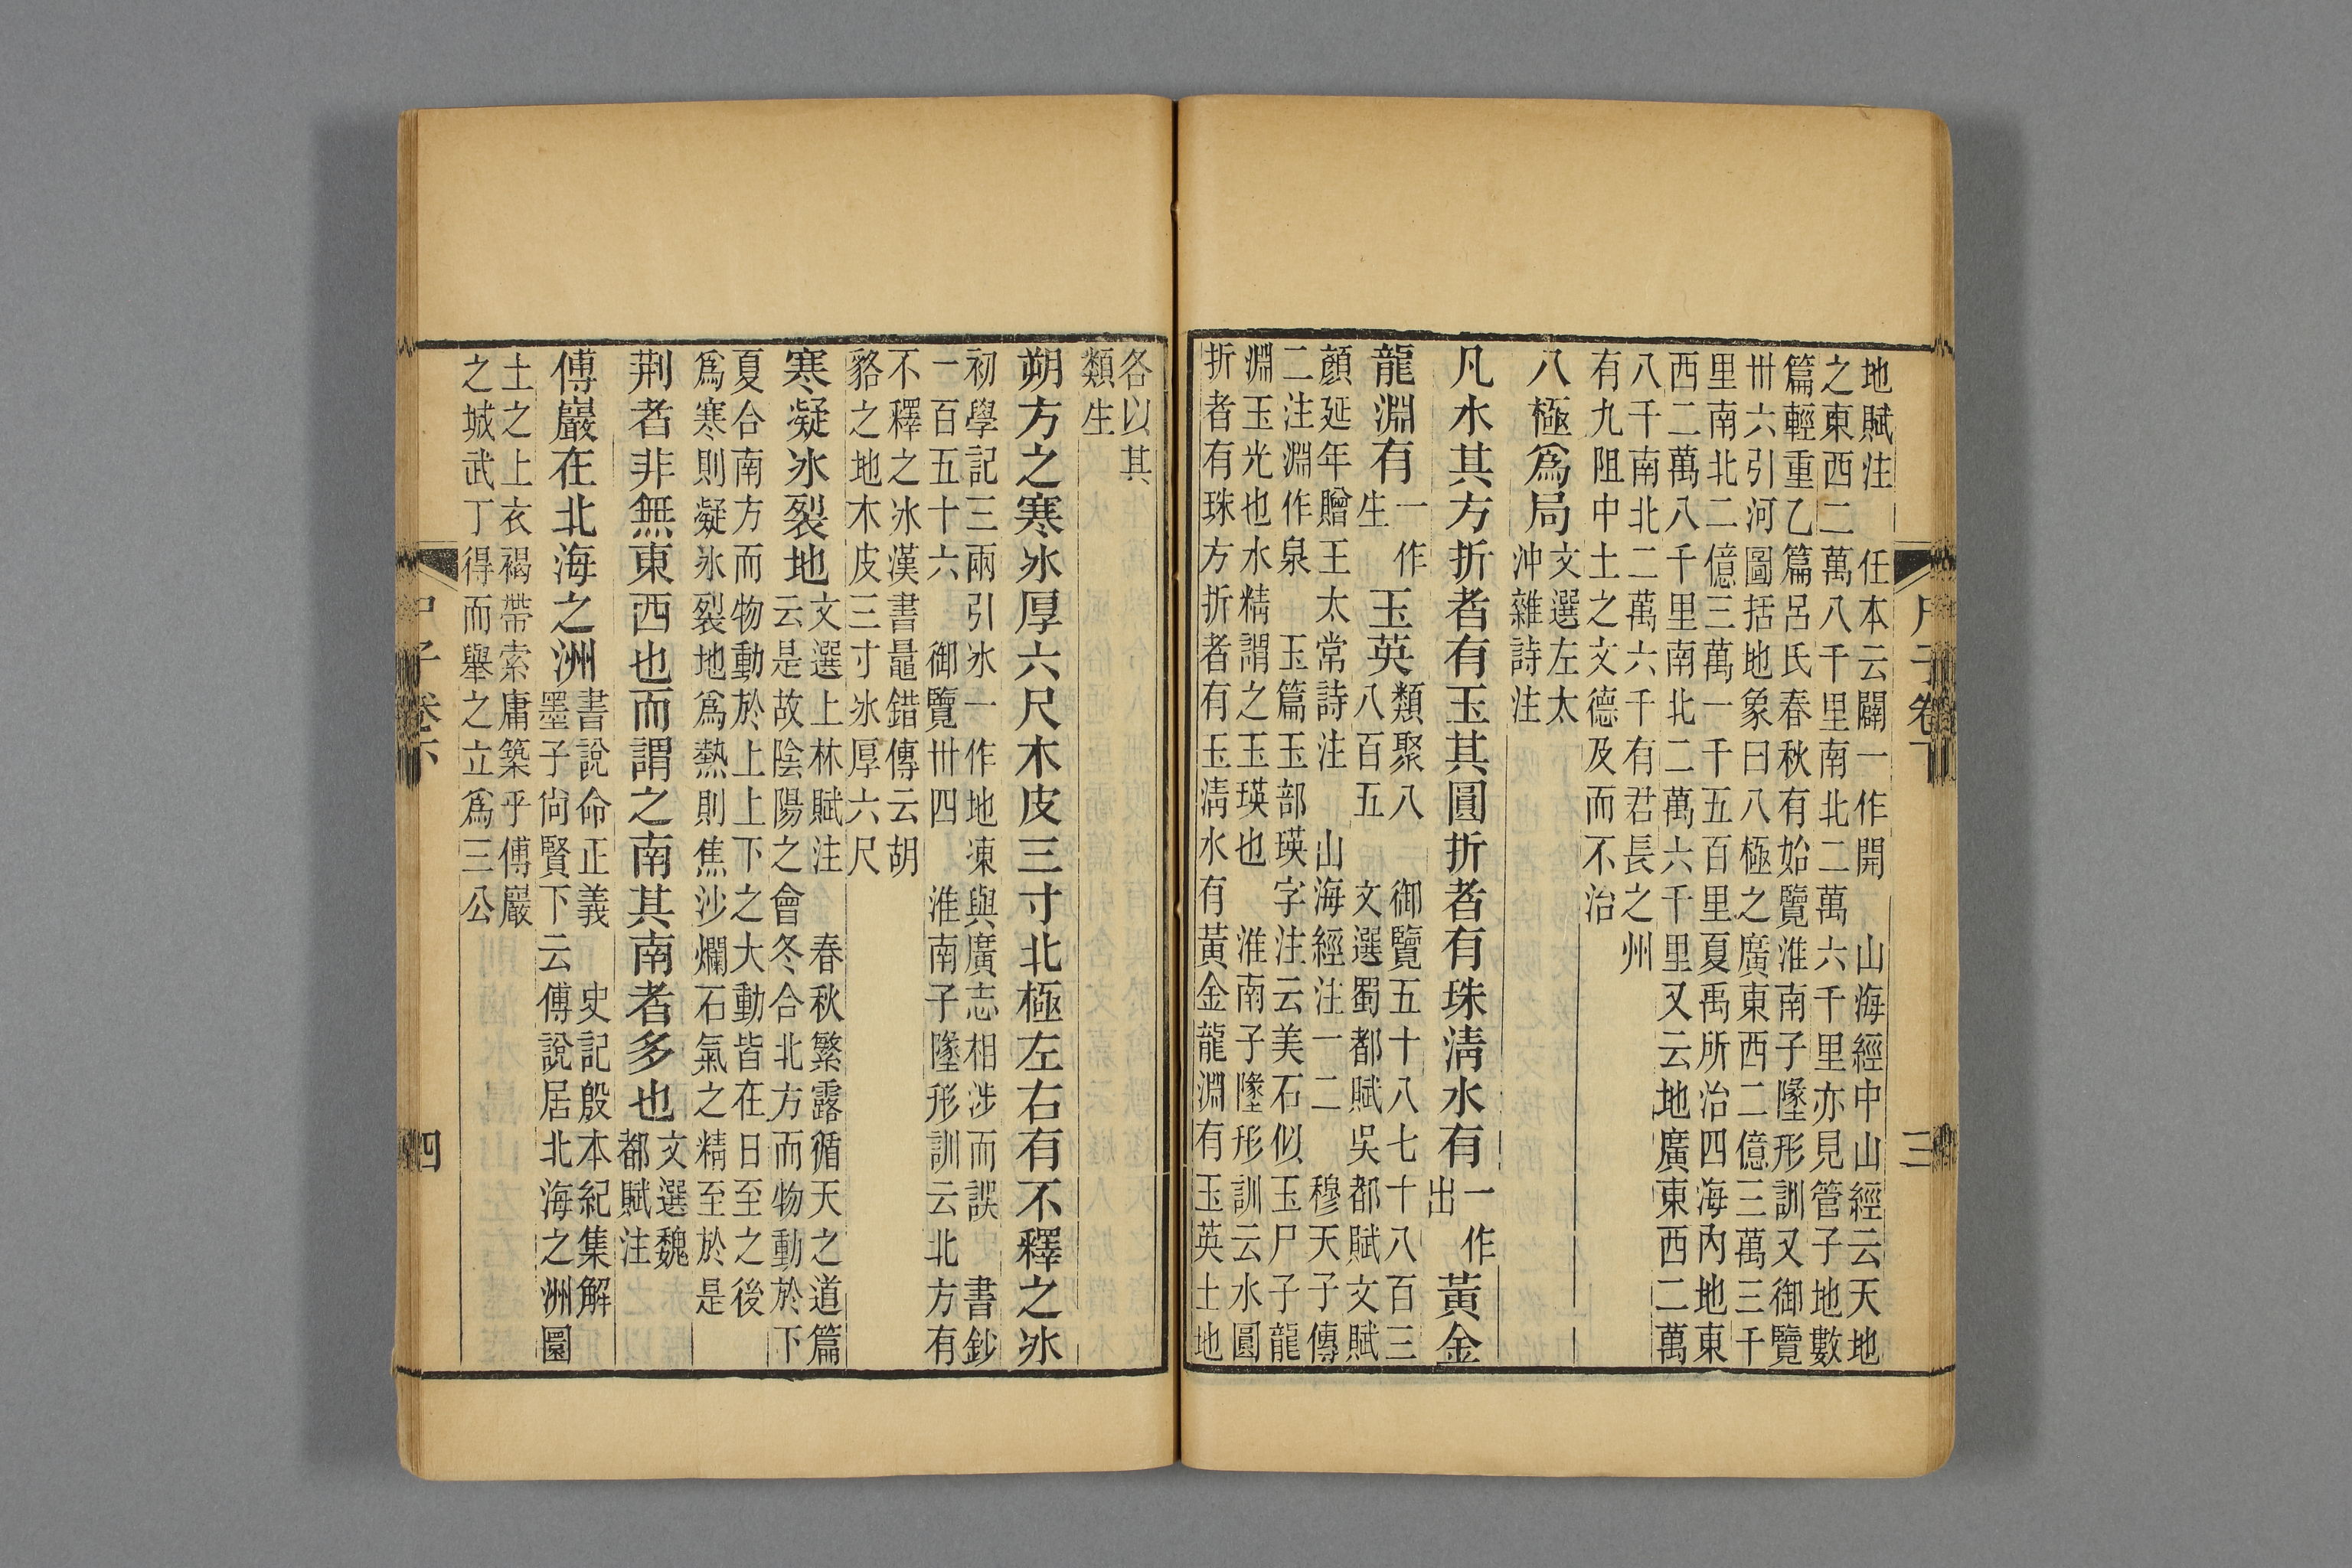 尸子卷下 三
地賦注 任本云闢一作開 山海經中山經云天地
之東西二萬八千里南北二萬六千里亦見管子地數
篇輕重乙篇呂氏春秋有始覽淮南子墬形訓又御覽
卅六引河圖括地象曰八極之廣東西二億三萬三千
里南北二億三萬一千五百里夏禹所治四海內地東
西二萬八千里南北二萬六千里又云地廣東西二萬
八千南北二萬六千有君長之州
有九阻中土之文德及而不治
八極爲局 文選左太
沖雜詩注
凡水其方折者有玉其圓折者有珠淸水有 一作
出 黃金
龍淵有 一作
生 玉英 類聚八 御覽五十八七十八百三
八百五 文選蜀都賦吳都賦文賦
顏延年贈王太常詩注 山海經注一二 穆天子傳
二注淵作泉 玉篇玉部瑛字注云美石似玉尸子龍
淵玉光也水精謂之玉瑛也 淮南子墬形訓云水圓
折者有珠方折者有玉淸水有黃金龍淵有玉英土地
各以其
類生
朔方之寒冰厚六尺木皮三寸北極左右有不釋之冰
初學記三兩引冰一作地凍與廣志相涉而誤 書鈔
一百五十六 御覽卅四 淮南子墬形訓云北方有
不釋之冰漢書鼂錯傳云胡
貉之地木皮三寸冰厚六尺
寒凝冰裂地 文選上林賦注 春秋繁露循天之道篇
云是故陰陽之會冬合北方而物動於下
夏合南方而物動於上上下之大動皆在日至之後
爲寒則凝冰裂地爲熱則焦沙爛石氣之精至於是
荆者非無東西也而謂之南其南者多也 文選魏
都賦注
傅巖在北海之洲 書說命正義 史記殷本紀集解
墨子尙賢下云傅說居北海之洲圜
土之上衣褐帶索庸築乎傅巖
之城武丁得而舉之立爲三公
尸子卷下 四